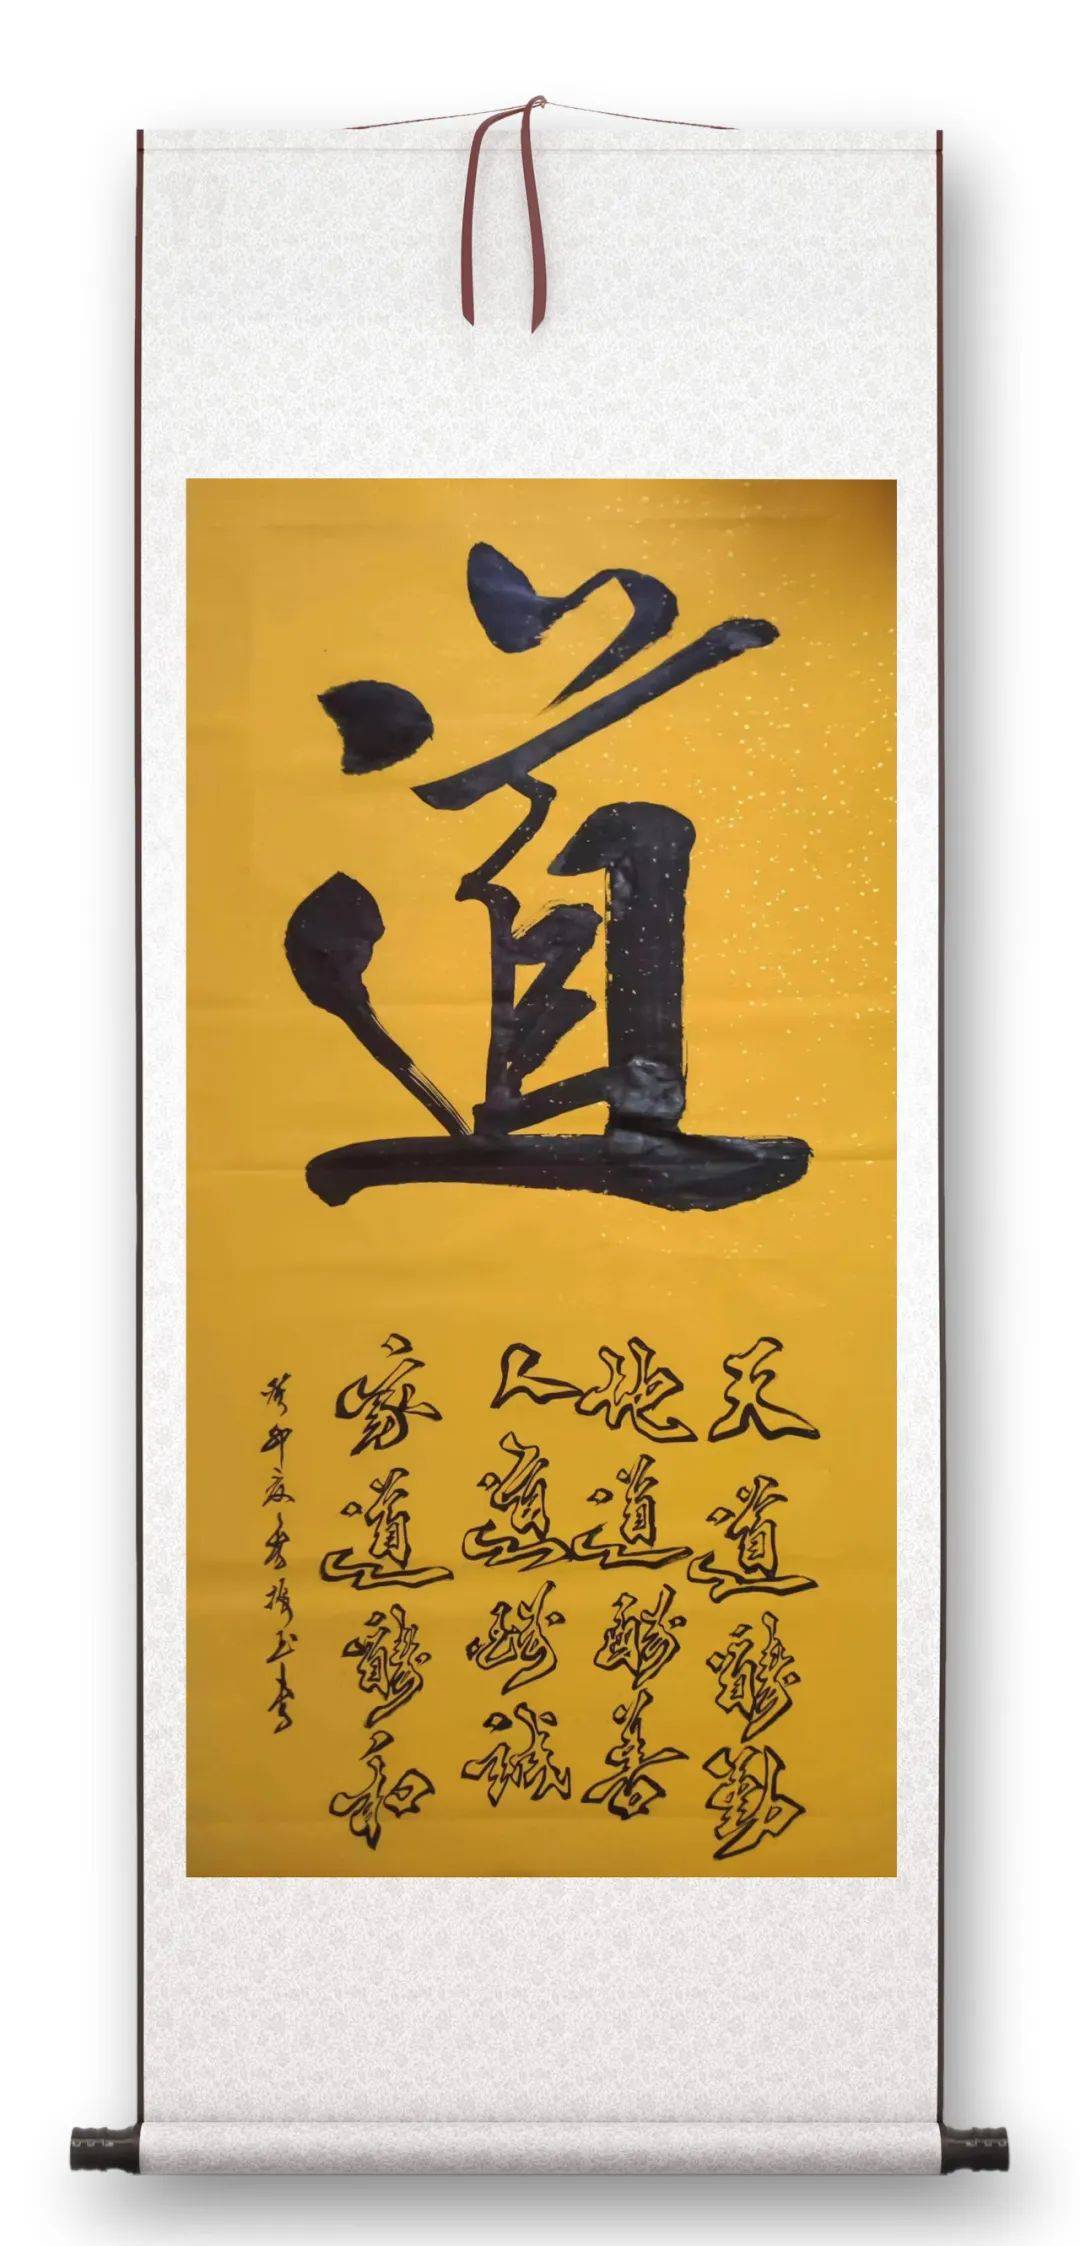 道
天道酬勤
地道酬善
人道酬诚
家道酬和
癸卯夏秀振玉书